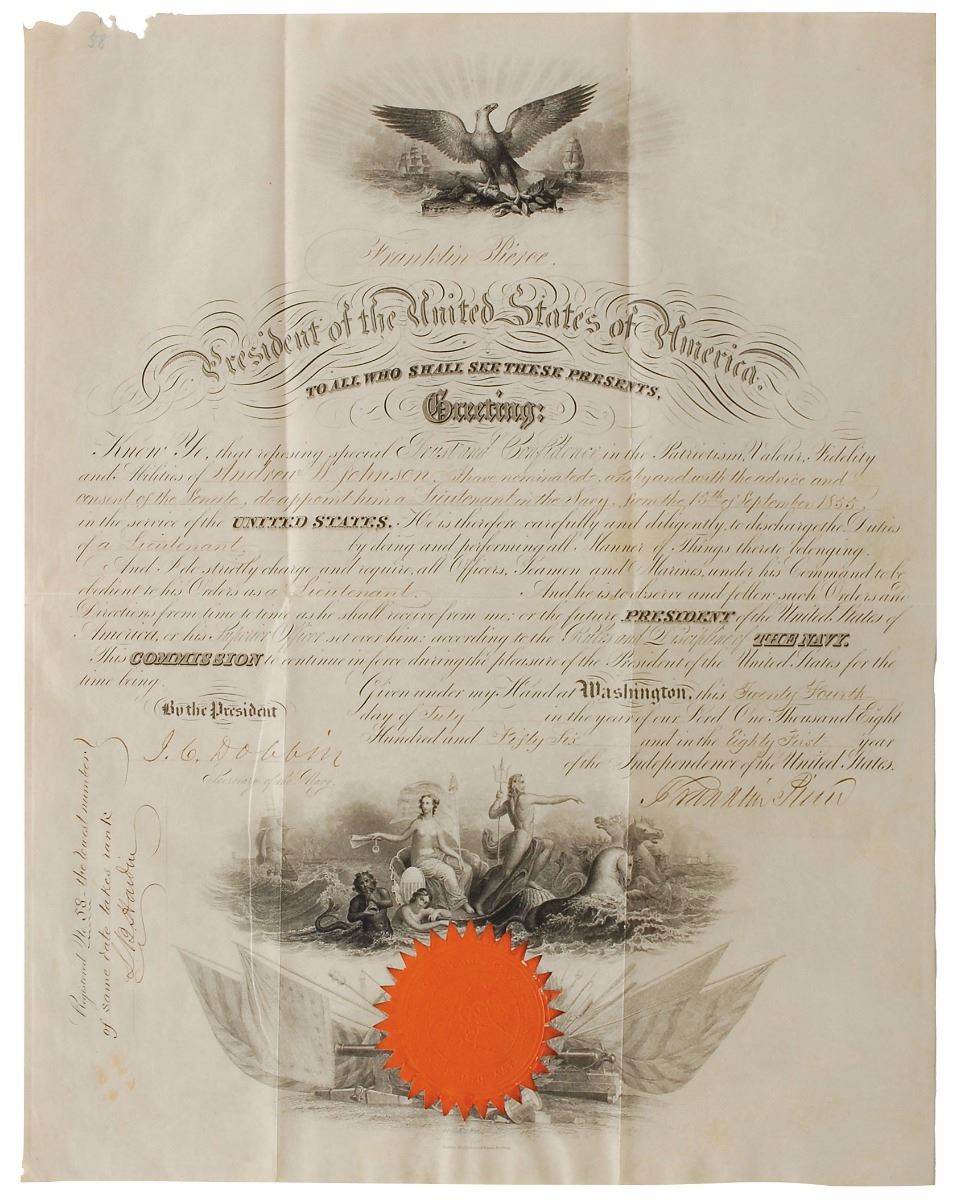 58
Franklin Pierce.
President of the United States of America.
TO ALL WHO SHALL SEE THESE PRESENTS,
Greeting:
Know Ye, that reposing special Trust and Confidence in the Patriotism, Valour, Fidelity
and Abilities of Andrew W. Johnson, I have nominated, and by and with the advice and
consent of the Senate, do appoint him a Lieutenant in the Navy, from the 15th of September 1855,
in the service of the UNITED STATES. He is therefore carefully and diligently to discharge the Duties
of a Lieutenant, by doing and performing all Manner of Things thereto belonging.
And I do strictly charge and require all Officers, Seamen and Marines, under his Command to be
obedient to his Orders as a Lieutenant. And he is to observe and follow such Orders and
Directions from time to time as he shall receive from me; or the future PRESIDENT of the United States of
America, or his Superior Officer set over him; according to the Rules and Discipline of THE NAVY.
This COMMISSION to continue in force during the pleasure of the President of the United States for the
time being.
Given under my Hand at Washington, this Twenty Fourth
By the President
day of July in the year of our Lord One Thousand Eight
Hundred and Fifty Six and in the Eighty First year
of the Independence of the United States.
J. C. Dobbin
Secretary of the Navy
Franklin Pierce
Registered No. 58. the lowest number
of same date takes rank
Hardin